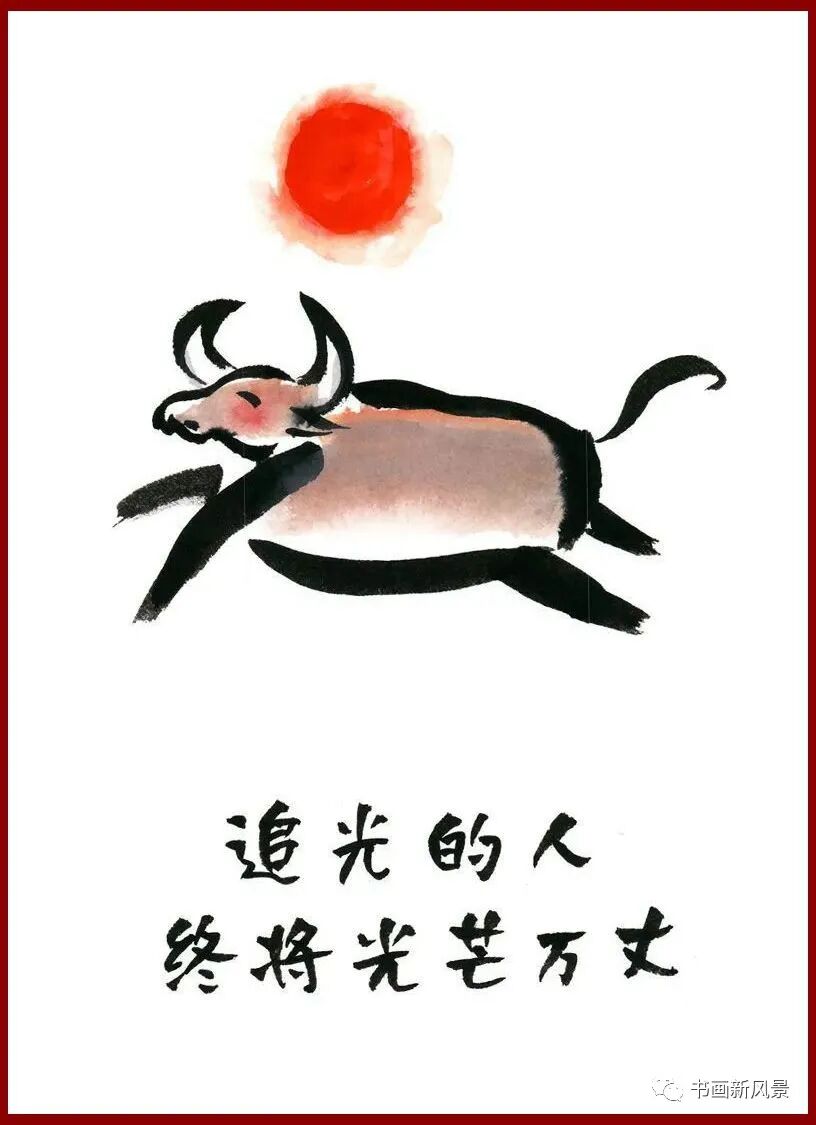 追光的人
终将光芒万丈
书画新风景